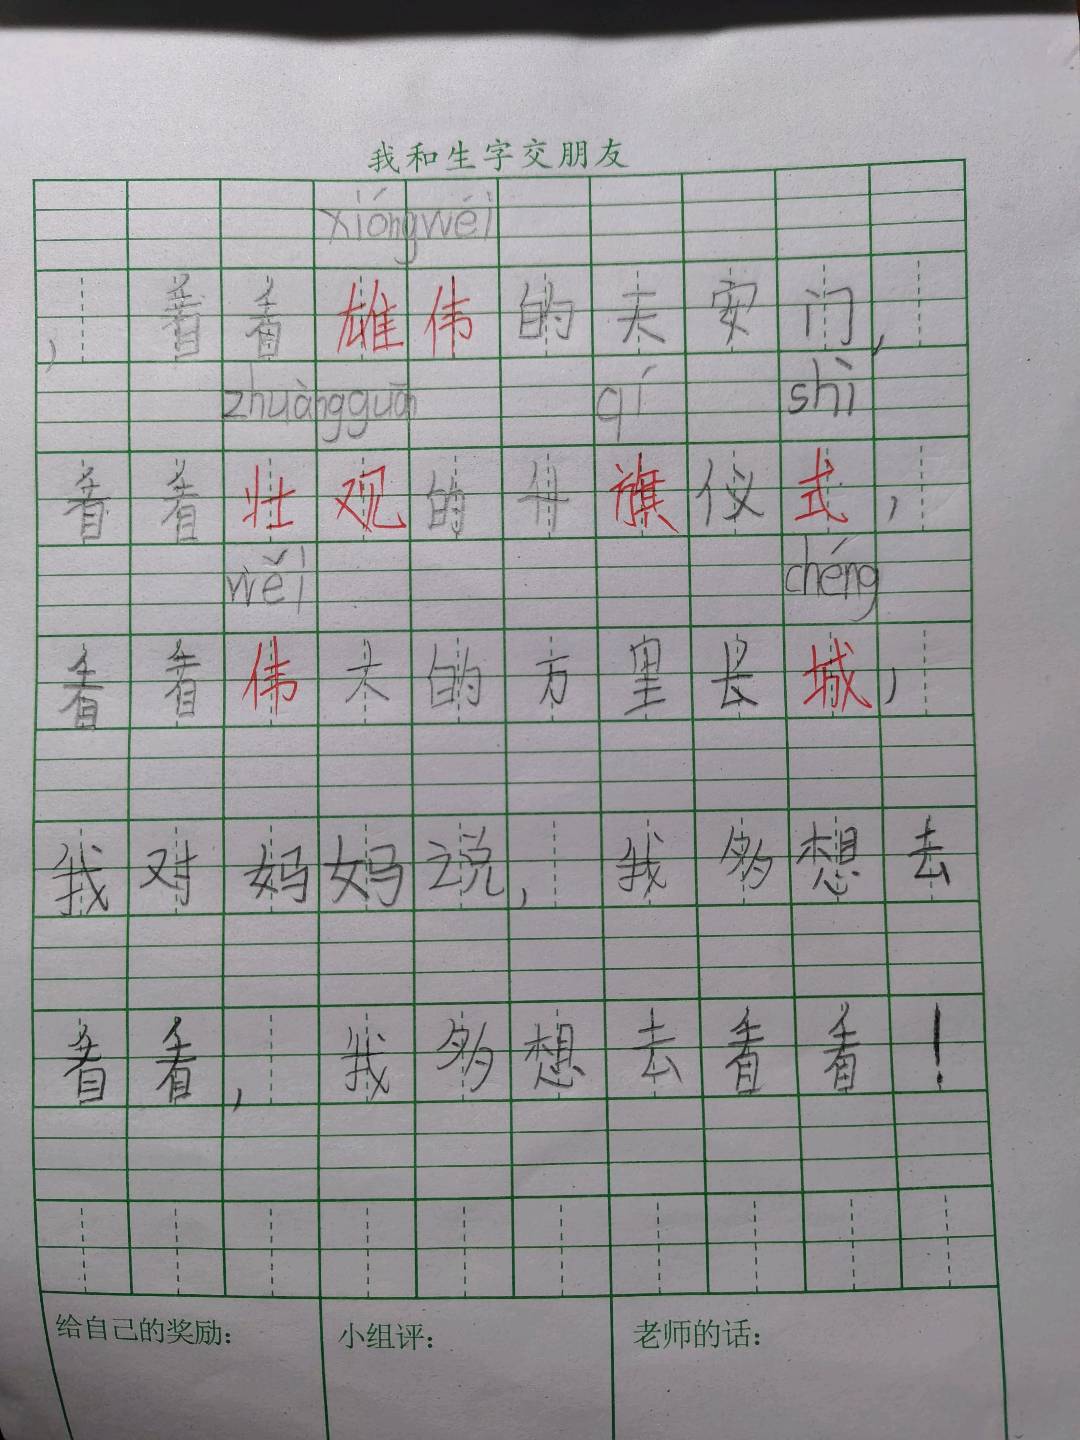 我和生字交朋友
xióngwéi
，看看雄伟的天安门，
zhuàngguān qí shì
看看壮观的升旗仪式，
wěi chéng
看看伟大的万里长城，
我对妈妈说，我多想去
看看，我多想去看看！
给自己的奖励： 小组评： 老师的话：